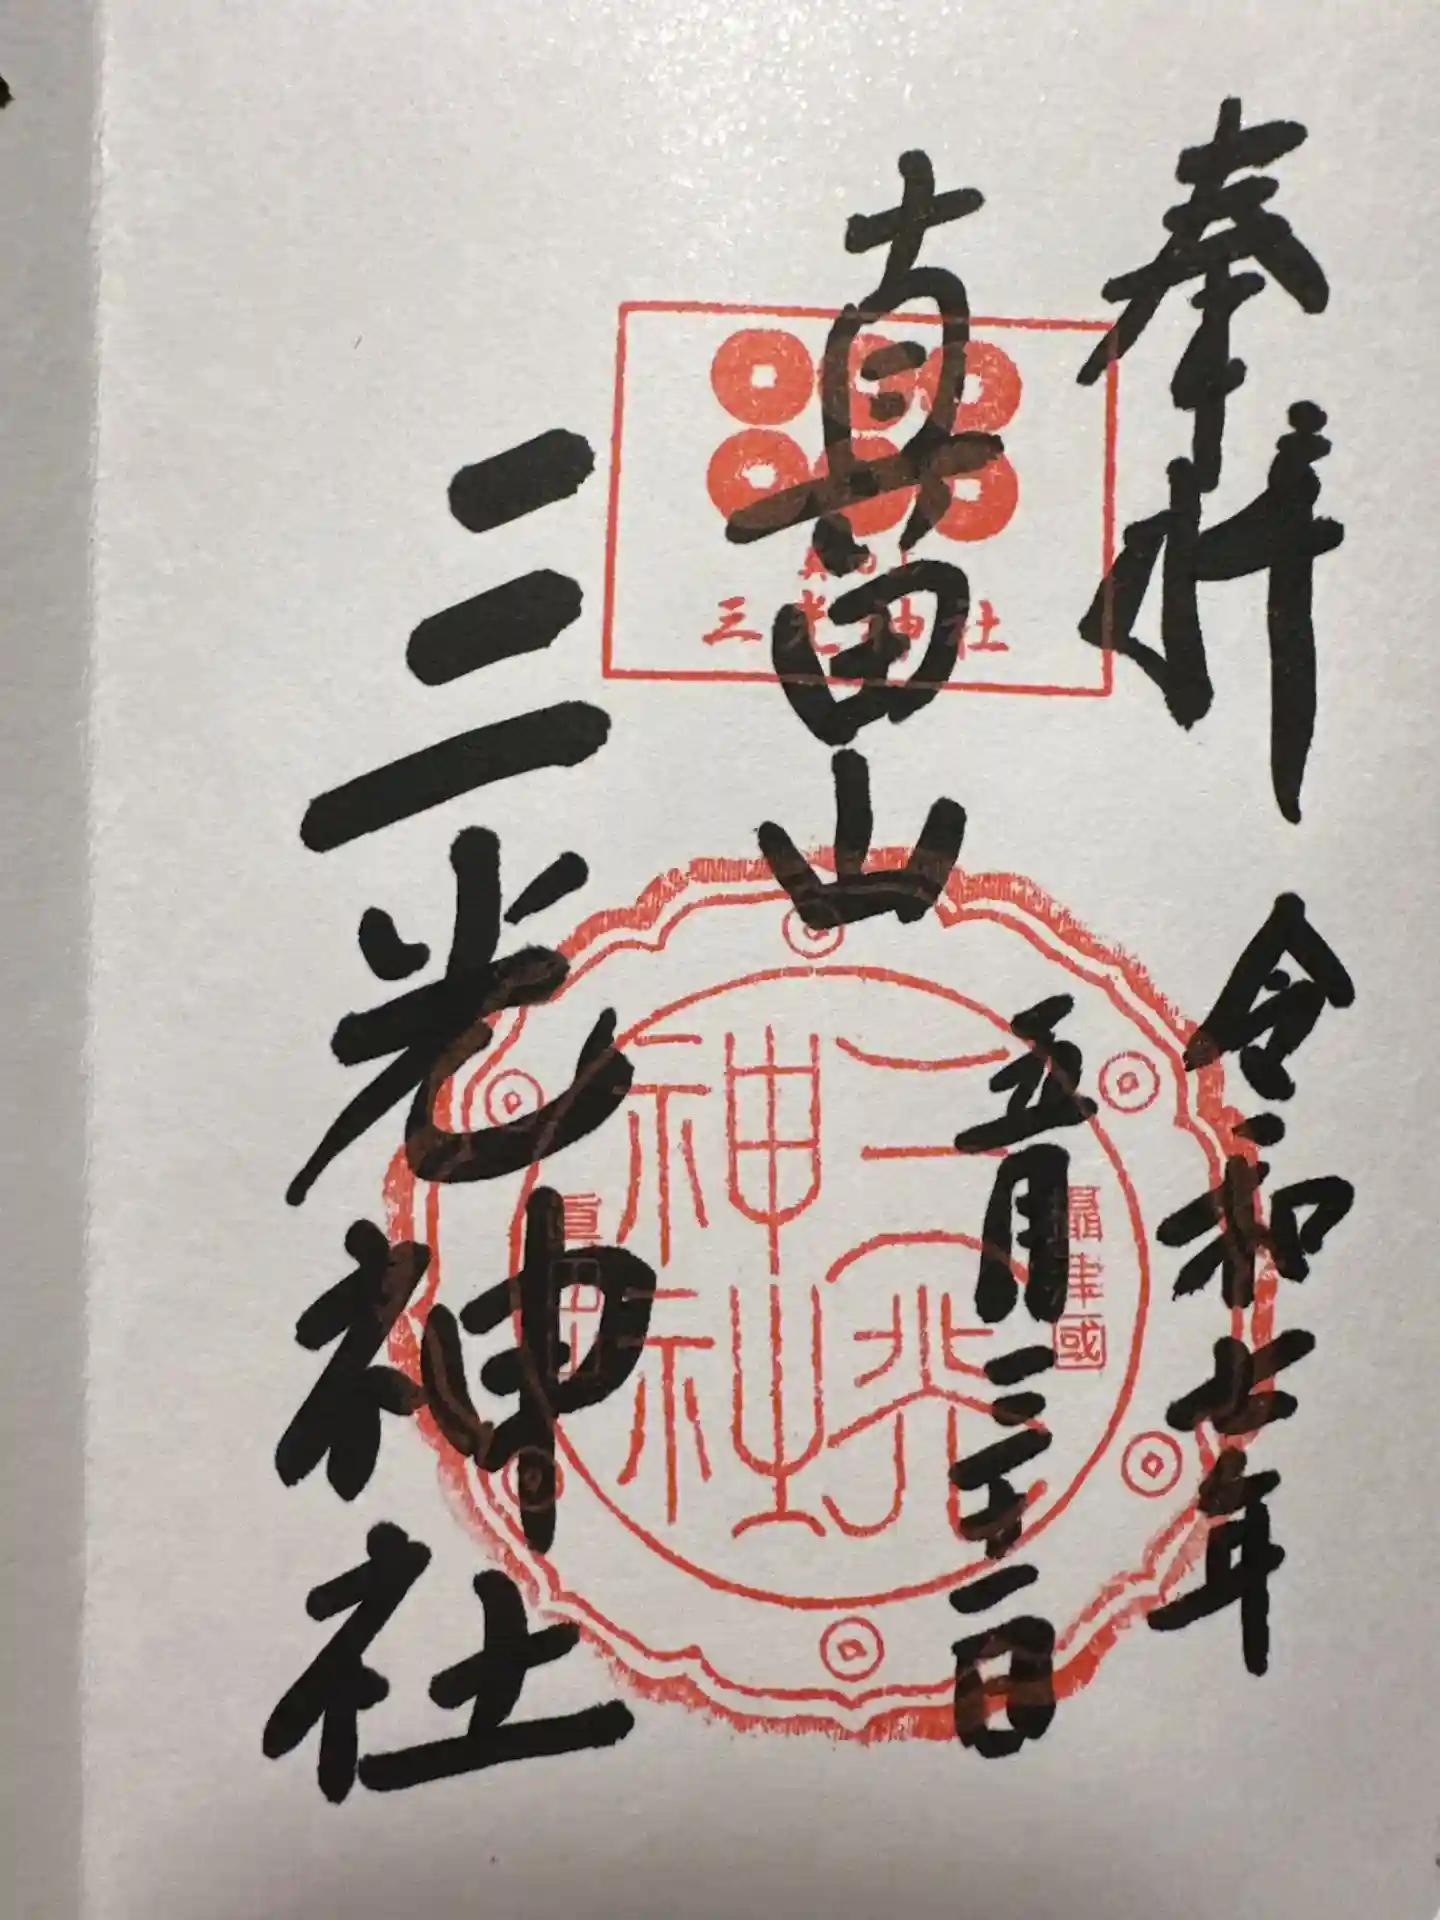 奉拝
令和七年
五月三十一日
真田山
三光神社
三光神社
三光
神社
攝津國